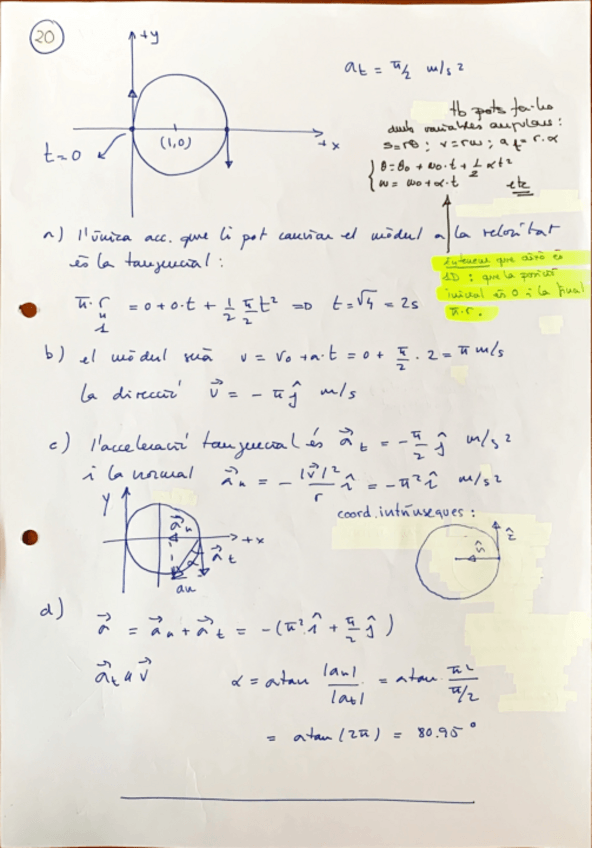 20
+y
a_t = π/2 m/s²
(1,0)
+x
t=0
tb pots fer-ho
amb variables angulars:
s=rθ ; v=rω ; a_t = r·α
θ=θ₀ + ω₀·t + 1/2 αt²
ω= ω₀+α·t
etc
a) l'única acc. que li pot canviar el mòdul a la velocitat
és la tangencial:
suposem que això és
1D : que la posició
inicial és 0 i la final
π·r.
π·r = 0+0·t + 1/2 π/2 t² => t=√4 = 2s
1
b) el mòdul serà v = v₀ +a·t = 0 + π/2 · 2 = π m/s
la direcció v⃗ = − π ĵ m/s
c) l'acceleració tangencial és a⃗_t = − π/2 ĵ m/s²
i la normal a⃗_n = − |v⃗|²/r î = −π² î m/s²
coord. intrínseques :
y
a⃗_n
+x
a⃗_t
α
d)
a⃗ = a⃗_n + a⃗_t = −(π² î + π/2 ĵ)
a⃗_t ∥ v⃗ α = atan |a_n|/|a_t| = atan π²/(π/2)
= atan (2π) = 80.95°